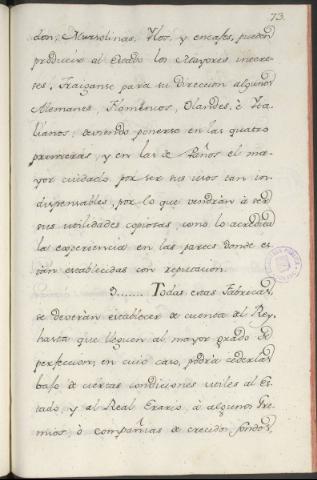 73.
don, Mursolinas, Ylos, y encajes, pueden
producir al Estado los Mayores intere-
ses, Traiganse para su Direccion algunos
Alemanes, Flamencos, Olandes, è Yta-
lianos; deviendo ponerse en las quatro
primeras, y en las de Paños el ma-
yor cuidado, por ser sus usos tan in-
dispensables, por lo que vendràn à ser
sus utilidades copiosas, como lo acredita
la experiencia en las partes donde es-
tàn establecidas con reputacion.
9....... Todas estas Fabricas,
se deveràn establecer de cuenta del Rey,
hasta que lleguen al mayor grado de
perfeccion, en cuio caso, podrà cederlas
bajo de ciertas condiciones utiles al Es-
tado, y al Real Erario, à algunos Gre-
mios, ò compañias de crecidos fondos,